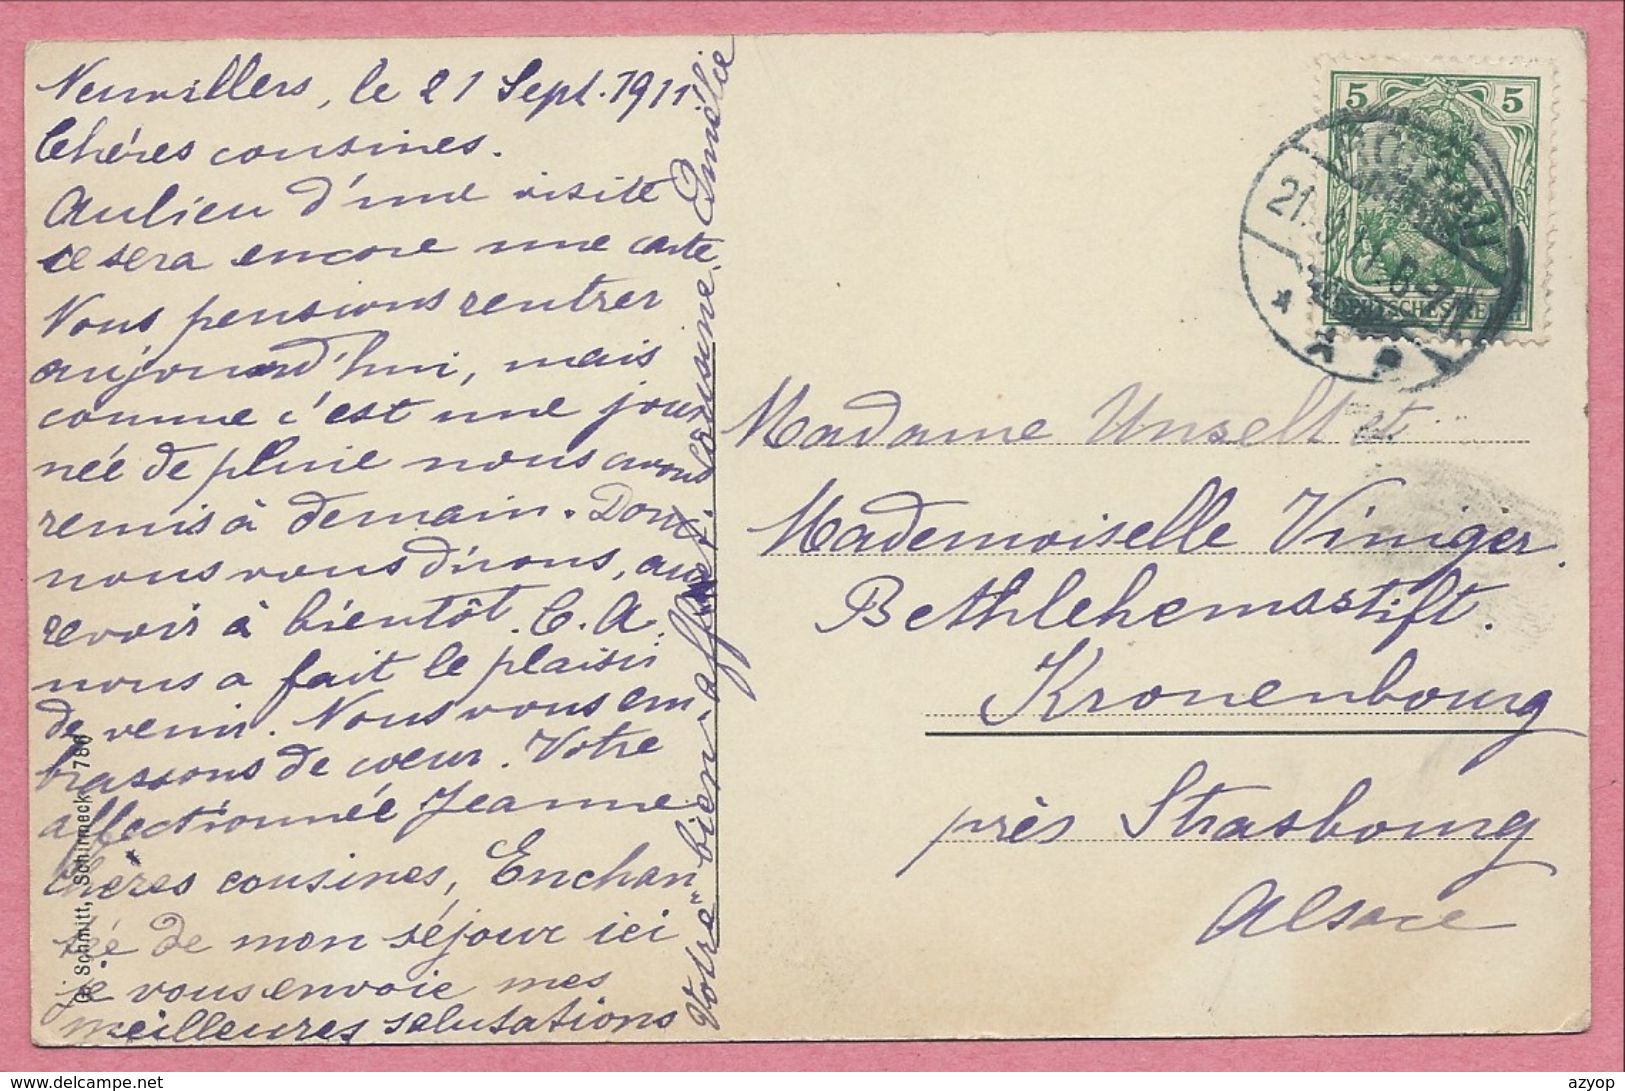 Neuvillers, le 21 Sept. 1911.
Chéres cousines.
Aulieu d'une visite
ce sera encore une carte.
Nous pensions rentrer
aujourd'hui, mais
comme c'est une jour
née de pluie nous avons
remis à demain. Donc
nous vous dirons, au
revoir à bientôt. C. A.
nous a fait le plaisir
de venir. Nous vous em
brassons de coeur. Votre
affectionnée Jeanne
Chères cousines, Enchan=
tée de mon séjour ici
je vous envoie mes
meilleures salutations
Votre bien affect. cousine Emélie
G. Schmitt, Schirmeck 786
5 5
21.9.11. 6-7N
DEUTSCHES REICH
Madame Unselt et
Mademoiselle Viniger.
Bethlehemsstift.
Kronenbourg
près Strasbourg
Alsace
azyop